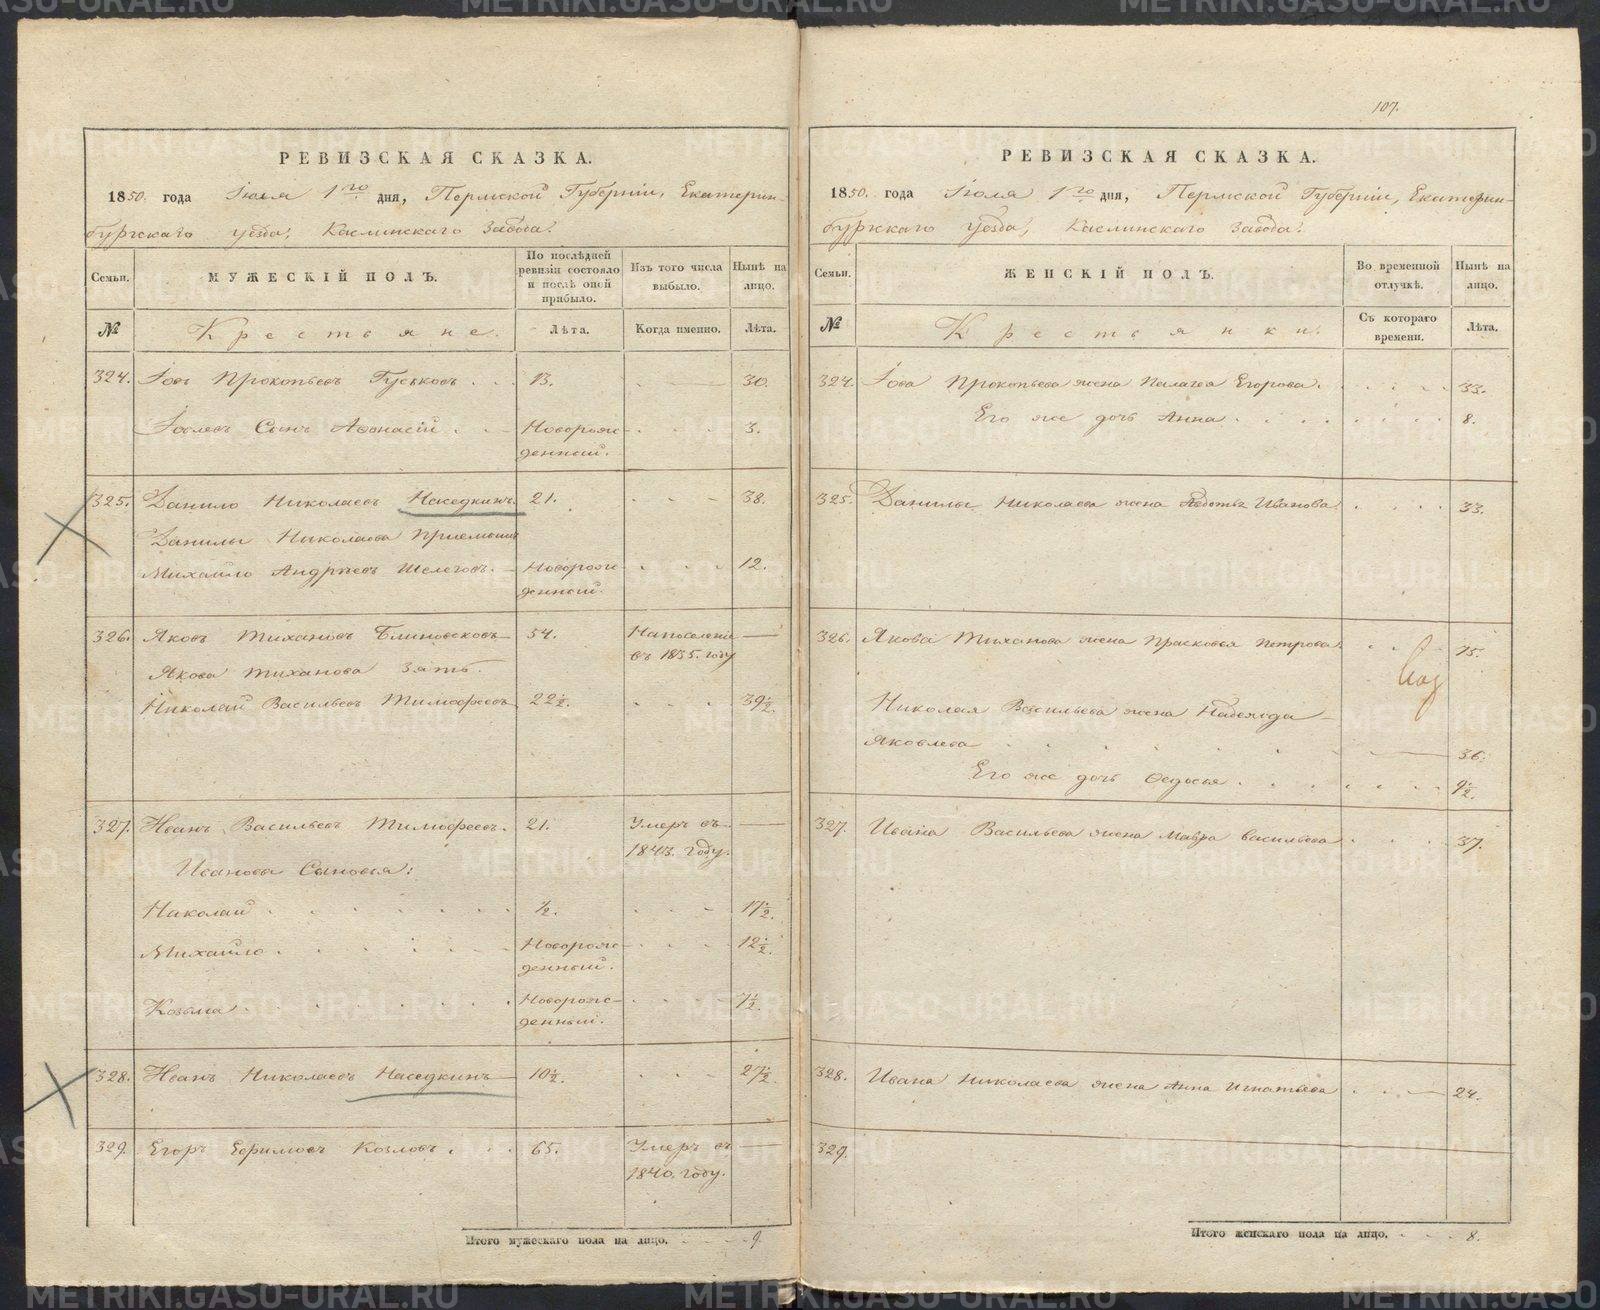 107.
РЕВИЗСКАЯ СКАЗКА.
1850. года Іюля 1го дня, Пермской Губерніи, Екатерин-
бургскаго уезда, Каслинскаго Завода.
Семьи. МУЖЕСКІЙ ПОЛЪ. По последней ревизіи состояло и послѣ оной прибыло. Изъ того числа выбыло. Нынѣ на лицо.
№ Крестьяне. Лѣта. Когда именно. Лѣта.
324. Іовъ Прокопьевъ Гуськовъ . . . 13. 30.
Іовлевъ Сынъ Афонасій . Новорож- 3.
денный.
325. Данило Николаевъ Наседкинъ. 21. 38.
Данилы Николаева Приемышъ
Михайло Андреевъ Шелеговъ. Новорож- 12.
денный.
326. Яковъ Тихановъ Блиновсковъ 54. На поселеніе —
въ 1835. году
Якова Тиханова Зять.
Николай Васильевъ Тимофеевъ 22 1/2. 39 1/2.
327. Иванъ Васильевъ Тимофеевъ. 21. Умеръ въ —
1843. году.
Ивановы Сыновья:
Николай 1/2. 17 1/2.
Михайло Новорож- 12 1/2.
денный.
Козьма Новорож- 7 1/2.
денный.
328. Иванъ Николаевъ Наседкинъ 10 1/2. 27 1/2.
329. Егоръ Ефимовъ Козловъ . . . 65. Умеръ въ —
1840. году.
Итого мужескаго пола на лицо. 9.
РЕВИЗСКАЯ СКАЗКА.
1850. года Іюля 1го дня, Пермской Губерніи, Екатерин-
бургскаго Уезда, Каслинскаго Завода.
Семьи. ЖЕНСКІЙ ПОЛЪ. Во временной отлучкѣ. Нынѣ на лицо.
№ Крестьянки. Съ котораго времени. Лѣта.
324. Іова Прокопьева жена Палагея Егорова. 33.
Его же дочь Анна 8.
325. Данилы Николаева жена Авдотья Иванова. 33.
326. Якова Тиханова жена Прасковья Петрова. 75.
Николая Васильева жена Надежда
Яковлева 36.
Его же дочь Федосья 9 1/2.
327. Ивана Васильева жена Мавра Васильева 37.
328. Ивана Николаева жена Анна Игнатьева 24.
329.
Итого женскаго пола на лицо. 8.
METRIKI.GASO-URAL.RU